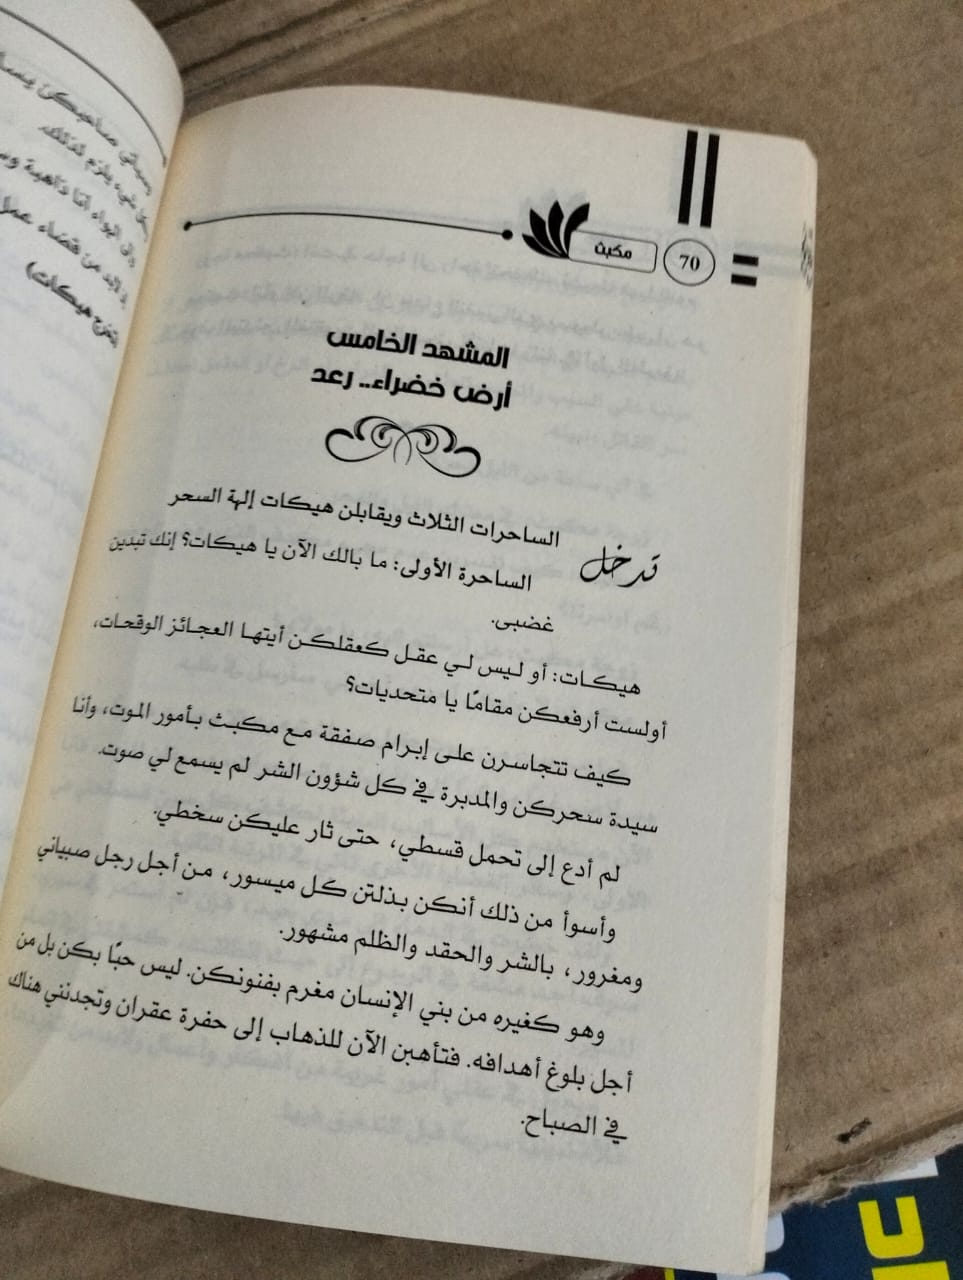 70
مكبث
المشهد الخامس
أرض خضراء.. رعد
تدخل الساحرات الثلاث ويقابلن هيكات إلهة السحر
الساحرة الأولى: ما بالك الآن يا هيكات؟ إنك تبدين
غضبى.
هيكات: أو ليس لي عقل كعقلكن أيتها العجائز الوقحات،
أولست أرفعكن مقامًا يا متحديات؟
كيف تتجاسرن على إبرام صفقة مع مكبث بأمور الموت، وأنا
سيدة سحركن والمدبرة في كل شؤون الشر لم يسمع لي صوت.
لم أدع إلى تحمل قسطي، حتى ثار عليكن سخطي.
وأسوأ من ذلك أنكن بذلتن كل ميسور، من أجل رجل صبياني
ومغرور، بالشر والحقد والظلم مشهور.
وهو كغيره من بني الإنسان مغرم بفنونكن. ليس حبًا بكن بل من
أجل بلوغ أهدافه. فتأهبن الآن للذهاب إلى حفرة عقران وتجدنني هناك
في الصباح.
هيكات)